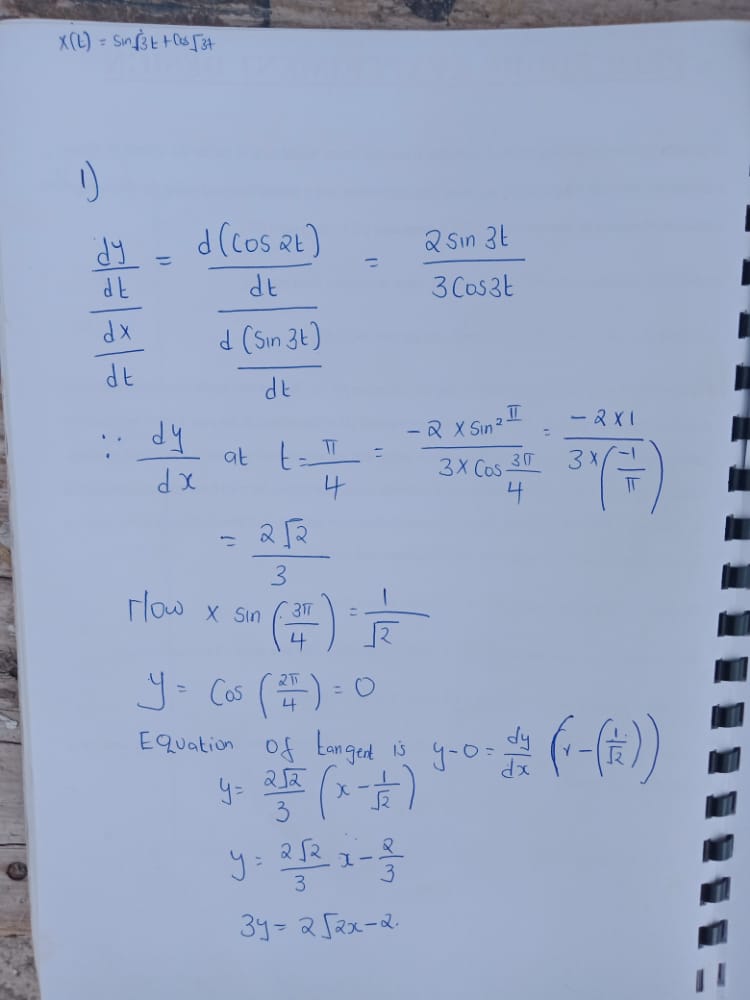 x(t) = sin√3t + Cos√3t
1)
dy/dt / dx/dt = d(Cos 2t)/dt / d(Sin 3t)/dt = 2 sin 3t / 3 Cos3t
∵ dy/dx at t = π/4 = -2 × sin² π / 3 × Cos 3π/4 = -2×1 / 3×(-1/π)
= 2√2/3
Now x sin (3π/4) = 1/√2
y = Cos (2π/4) = 0
Equation of tangent is y-0 = dy/dx (x-(1/√2))
y = 2√2/3 (x - 1/√2)
y = 2√2/3 x - 2/3
3y = 2√2x - 2.